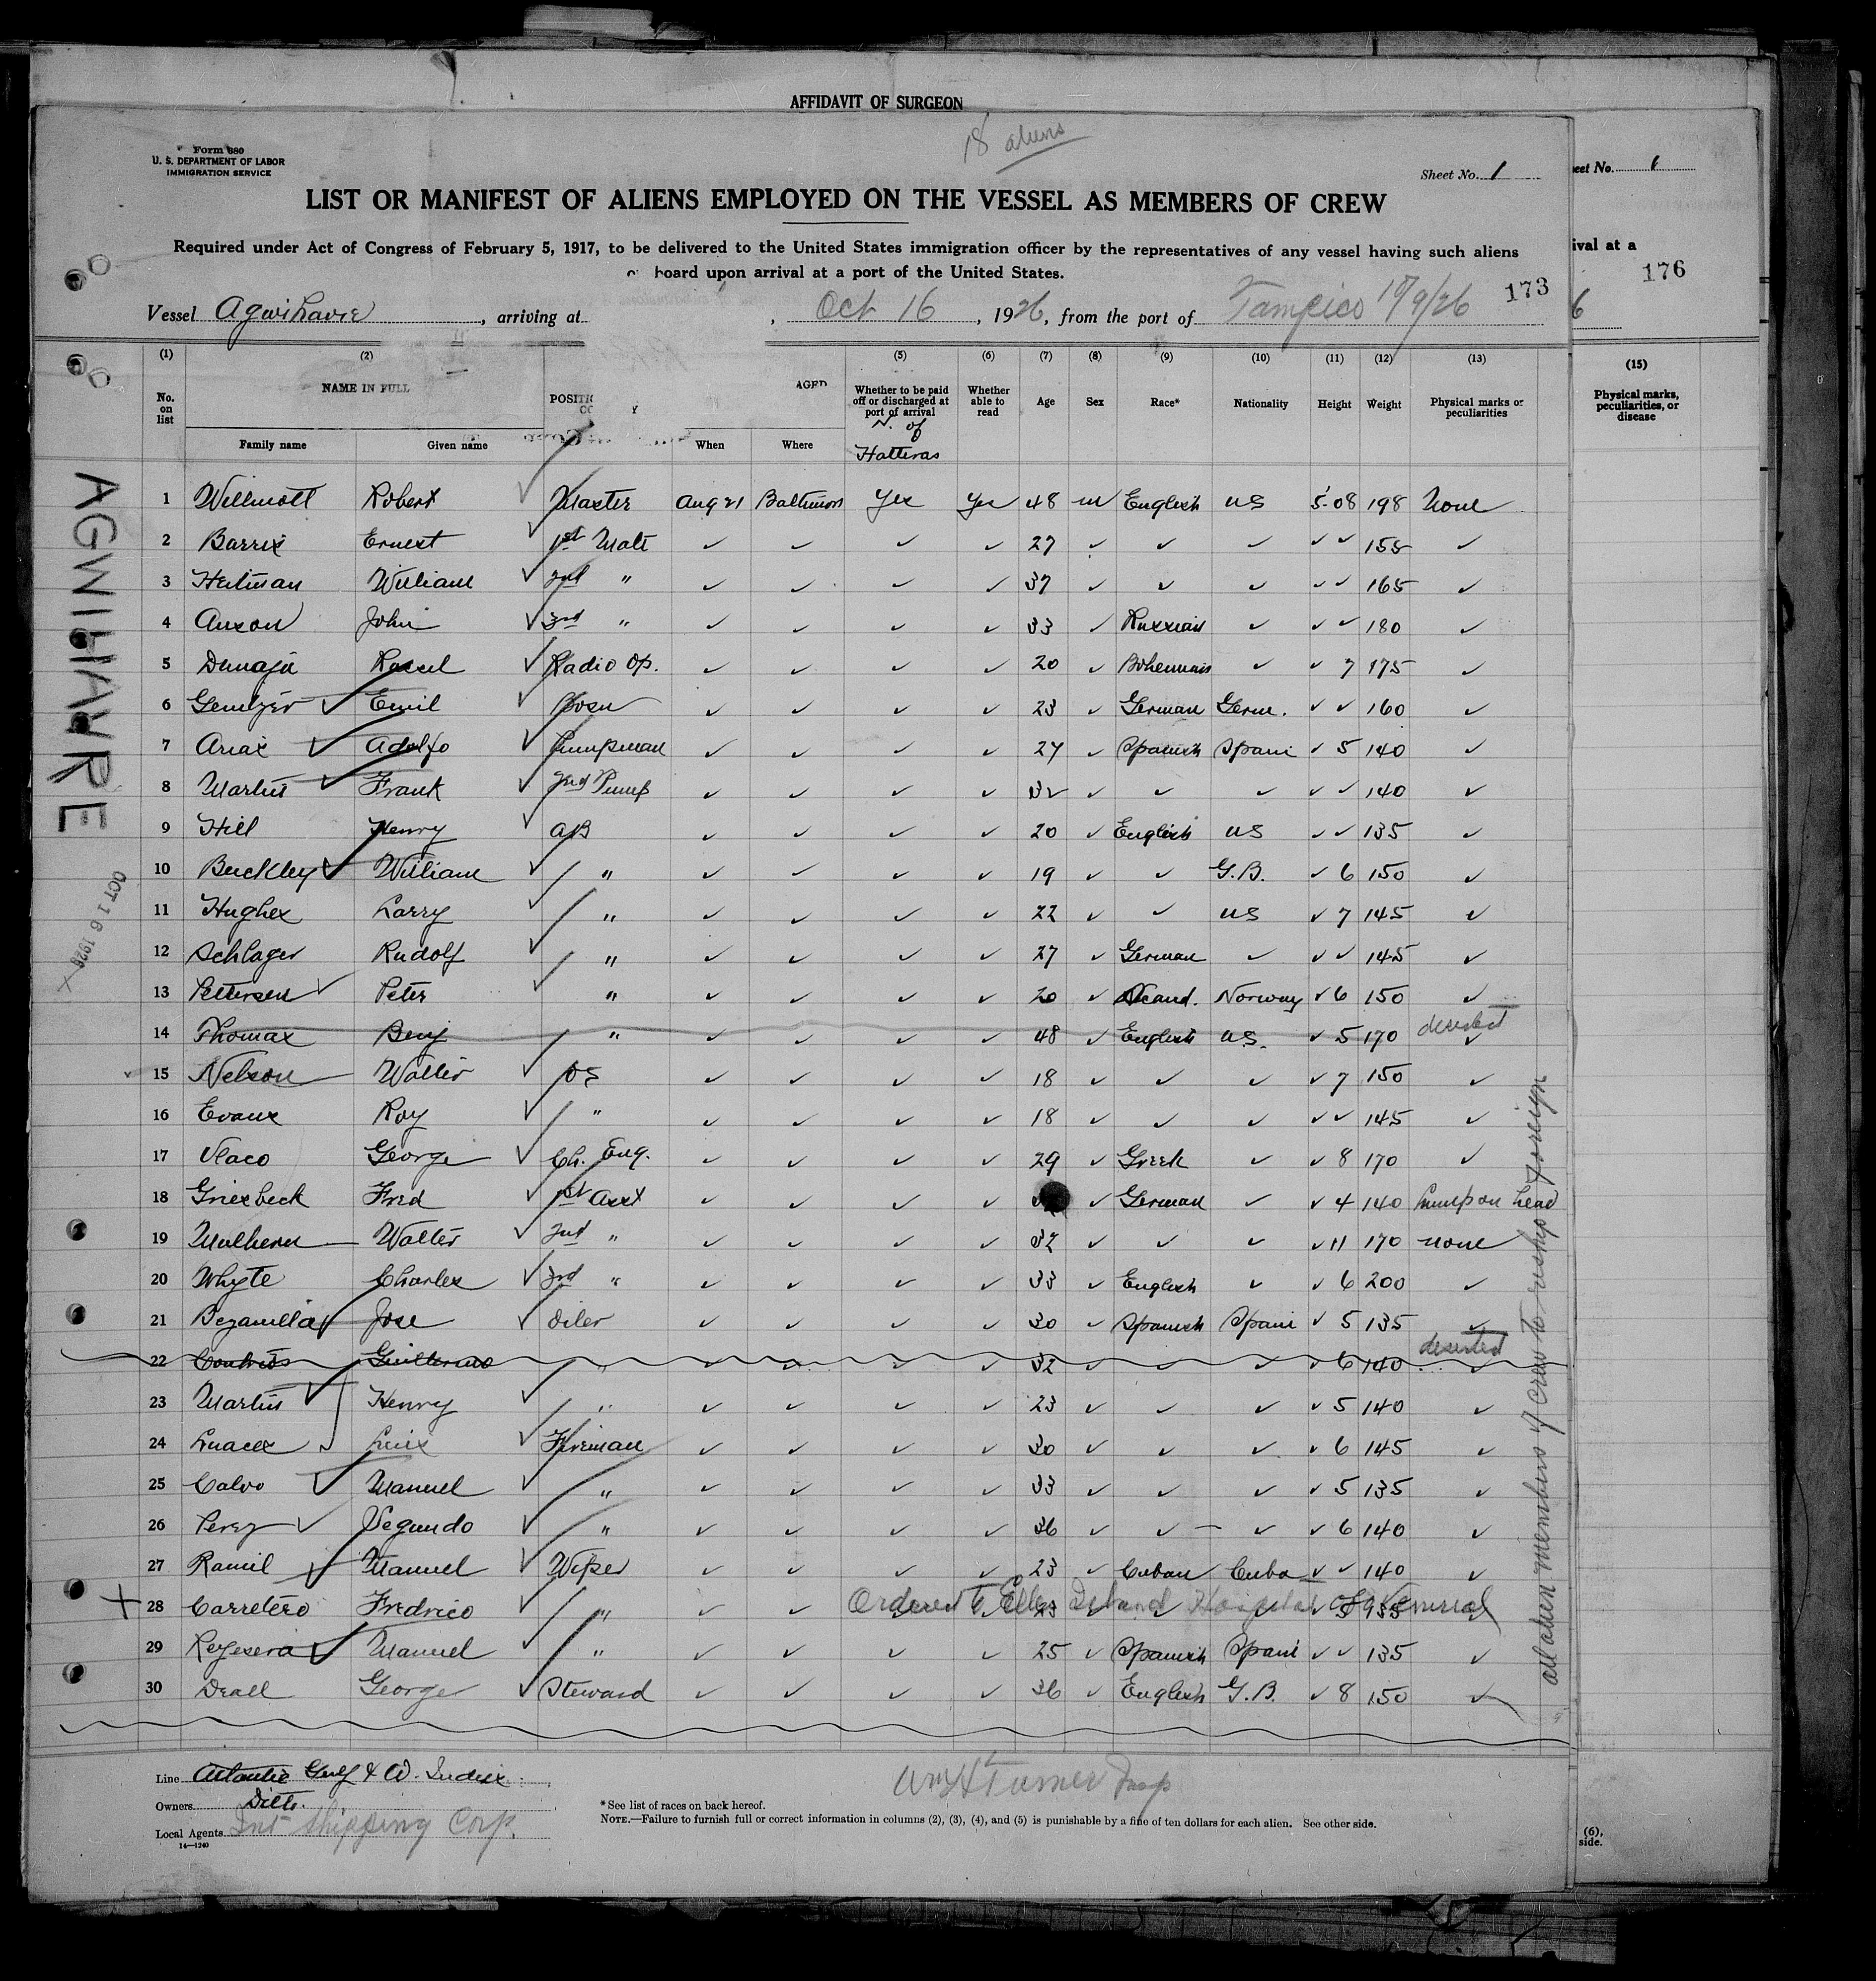 AFFIDAVIT OF SURGEON
18 aliens
Form 680
U. S. DEPARTMENT OF LABOR
IMMIGRATION SERVICE
Sheet No. 1
eet No. 1
LIST OR MANIFEST OF ALIENS EMPLOYED ON THE VESSEL AS MEMBERS OF CREW
Required under Act of Congress of February 5, 1917, to be delivered to the United States immigration officer by the representatives of any vessel having such aliens
board upon arrival at a port of the United States.
ival at a
176
173
Vessel Agwihavre, arriving at , Oct 16, 1926, from the port of Tampico 10/9/26
6
(1) (2) (5) (6) (7) (8) (9) (10) (11) (12) (13) (15)
No. on list NAME IN FULL POSITI AGED Whether to be paid off or discharged at port of arrival Whether able to read Age Sex Race* Nationality Height Weight Physical marks or peculiarities Physical marks, peculiarities, or disease
Family name Given name When Where N. of Hatteras
1 Willmott Robert Master Aug 21 Baltimore Yes Yes 48 m English US 5-08 198 None
2 Barrix Ernest 1st Mate ✓ ✓ ✓ ✓ 27 ✓ ✓ ✓ ✓ ✓ 155 ✓
3 William 2nd " ✓ ✓ ✓ ✓ 37 ✓ ✓ ✓ ✓ ✓ 165 ✓
4 Anson John 3rd " ✓ ✓ ✓ ✓ 33 ✓ Russian ✓ ✓ ✓ 180 ✓
5 Radio Op. ✓ ✓ ✓ ✓ 20 ✓ Bohemian ✓ ✓ 7 175 ✓
6 Emil Bosn ✓ ✓ ✓ ✓ 23 ✓ German Germ. ✓ ✓ 160 ✓
7 Arias Adolfo Pumpman ✓ ✓ ✓ ✓ 27 ✓ Spanish Spain ✓ 5 140 ✓
8 Martin Frank 2nd Pump ✓ ✓ ✓ ✓ 32 ✓ ✓ ✓ ✓ ✓ 140 ✓
9 Hill Henry AB ✓ ✓ ✓ ✓ 20 ✓ English US ✓ ✓ 135 ✓
10 Buckley William " ✓ ✓ ✓ ✓ 19 ✓ ✓ G.B. ✓ 6 150 ✓
11 Hughes Larry " ✓ ✓ ✓ ✓ 22 ✓ ✓ US ✓ 7 145 ✓
12 Schlager Rudolf " ✓ ✓ ✓ ✓ 27 ✓ German ✓ ✓ ✓ 145 ✓
13 Pettersen Peter " ✓ ✓ ✓ ✓ 20 ✓ Scand. Norway ✓ 6 150 ✓
14 Thomas Benj " ✓ ✓ ✓ ✓ 48 ✓ English US. ✓ 5 170 deserted ✓
15 Nelson Walter OS ✓ ✓ ✓ ✓ 18 ✓ ✓ ✓ ✓ 7 150 ✓
16 Evans Roy " ✓ ✓ ✓ ✓ 18 ✓ ✓ ✓ ✓ ✓ 145 ✓
17 Vlaco George Ch. Eng. ✓ ✓ ✓ ✓ 29 ✓ Greek ✓ ✓ 8 170 ✓
18 Griesbeck Fred 1st Asst ✓ ✓ ✓ ✓ ✓ German ✓ ✓ 4 140 Lump on head
19 Mulhern Walter 2nd " ✓ ✓ ✓ ✓ 32 ✓ ✓ ✓ ✓ 11 170 none
20 Whyte Charles 3rd " ✓ ✓ ✓ ✓ 33 ✓ English ✓ ✓ 6 200 ✓
21 Bezanilla Jose Oiler ✓ ✓ ✓ ✓ 30 ✓ Spanish Spain ✓ 5 135 ✓
22 Guillermo " ✓ ✓ ✓ ✓ 32 ✓ ✓ ✓ ✓ 6 140 deserted ✓
23 Martin Henry " ✓ ✓ ✓ ✓ 23 ✓ ✓ ✓ ✓ 5 140 ✓
24 Luis Fireman ✓ ✓ ✓ ✓ 30 ✓ ✓ ✓ ✓ 6 145 ✓
25 Calvo Manuel " ✓ ✓ ✓ ✓ 33 ✓ ✓ ✓ ✓ 5 135 ✓
26 Perez Segundo " ✓ ✓ ✓ ✓ 36 ✓ ✓ ✓ ✓ 6 140 ✓
27 Ramil Manuel Wiper ✓ ✓ ✓ ✓ 23 ✓ Cuban Cuba ✓ ✓ 140 ✓
28 Carretero Fredrico " ✓ ✓ Ordered to Ellis Island Hospital
29 Manuel " ✓ ✓ ✓ ✓ 25 ✓ Spanish Spain ✓ ✓ 135 ✓
30 Deall George Steward ✓ ✓ ✓ ✓ 36 ✓ English G.B. ✓ 8 150 ✓
AGWIHAVRE
OCT 16 1926
all alien members of crew to reship foreign
Line Atlantic Gulf & W. Indies.
Owners Ditto.
Local Agents Int Shipping Corp.
14—1240
Wm H Turner Insp
*See list of races on back hereof.
NOTE.—Failure to furnish full or correct information in columns (2), (3), (4), and (5) is punishable by a fine of ten dollars for each alien. See other side.
(6),
side.